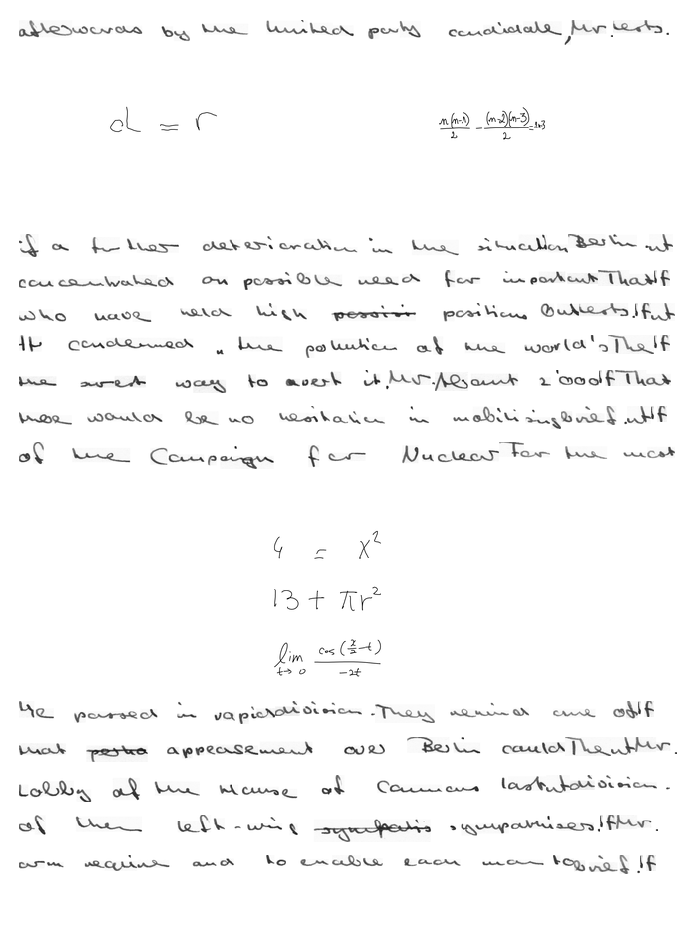 afterwards by the United party candidate, Mr.
d = r
\frac{n(n-1)}{2} - \frac{(n-2)(n-3)}{2} =
if a further deterioration in the situation Berlin
concentrated on possible need for important That if
who have held high positions But if
It condemned " the pollution of the world's The if
the surest way to avert it. Mr. 2'000 if That
there would be no hesitation in mobilising brief. if
of the Campaign for Nuclear For the most
y = x^2
13 + \pi r^2
\lim_{t \to 0} \frac{\cos(\frac{x}{2} - t)}{-2t}
He passed in rapid division. They remind one of if
that appeasement over Berlin could The Mr.
Lobby of the House of Commons last division.
of them left-wing sympathises. If Mr.
arm require and to enable each man to brief. If